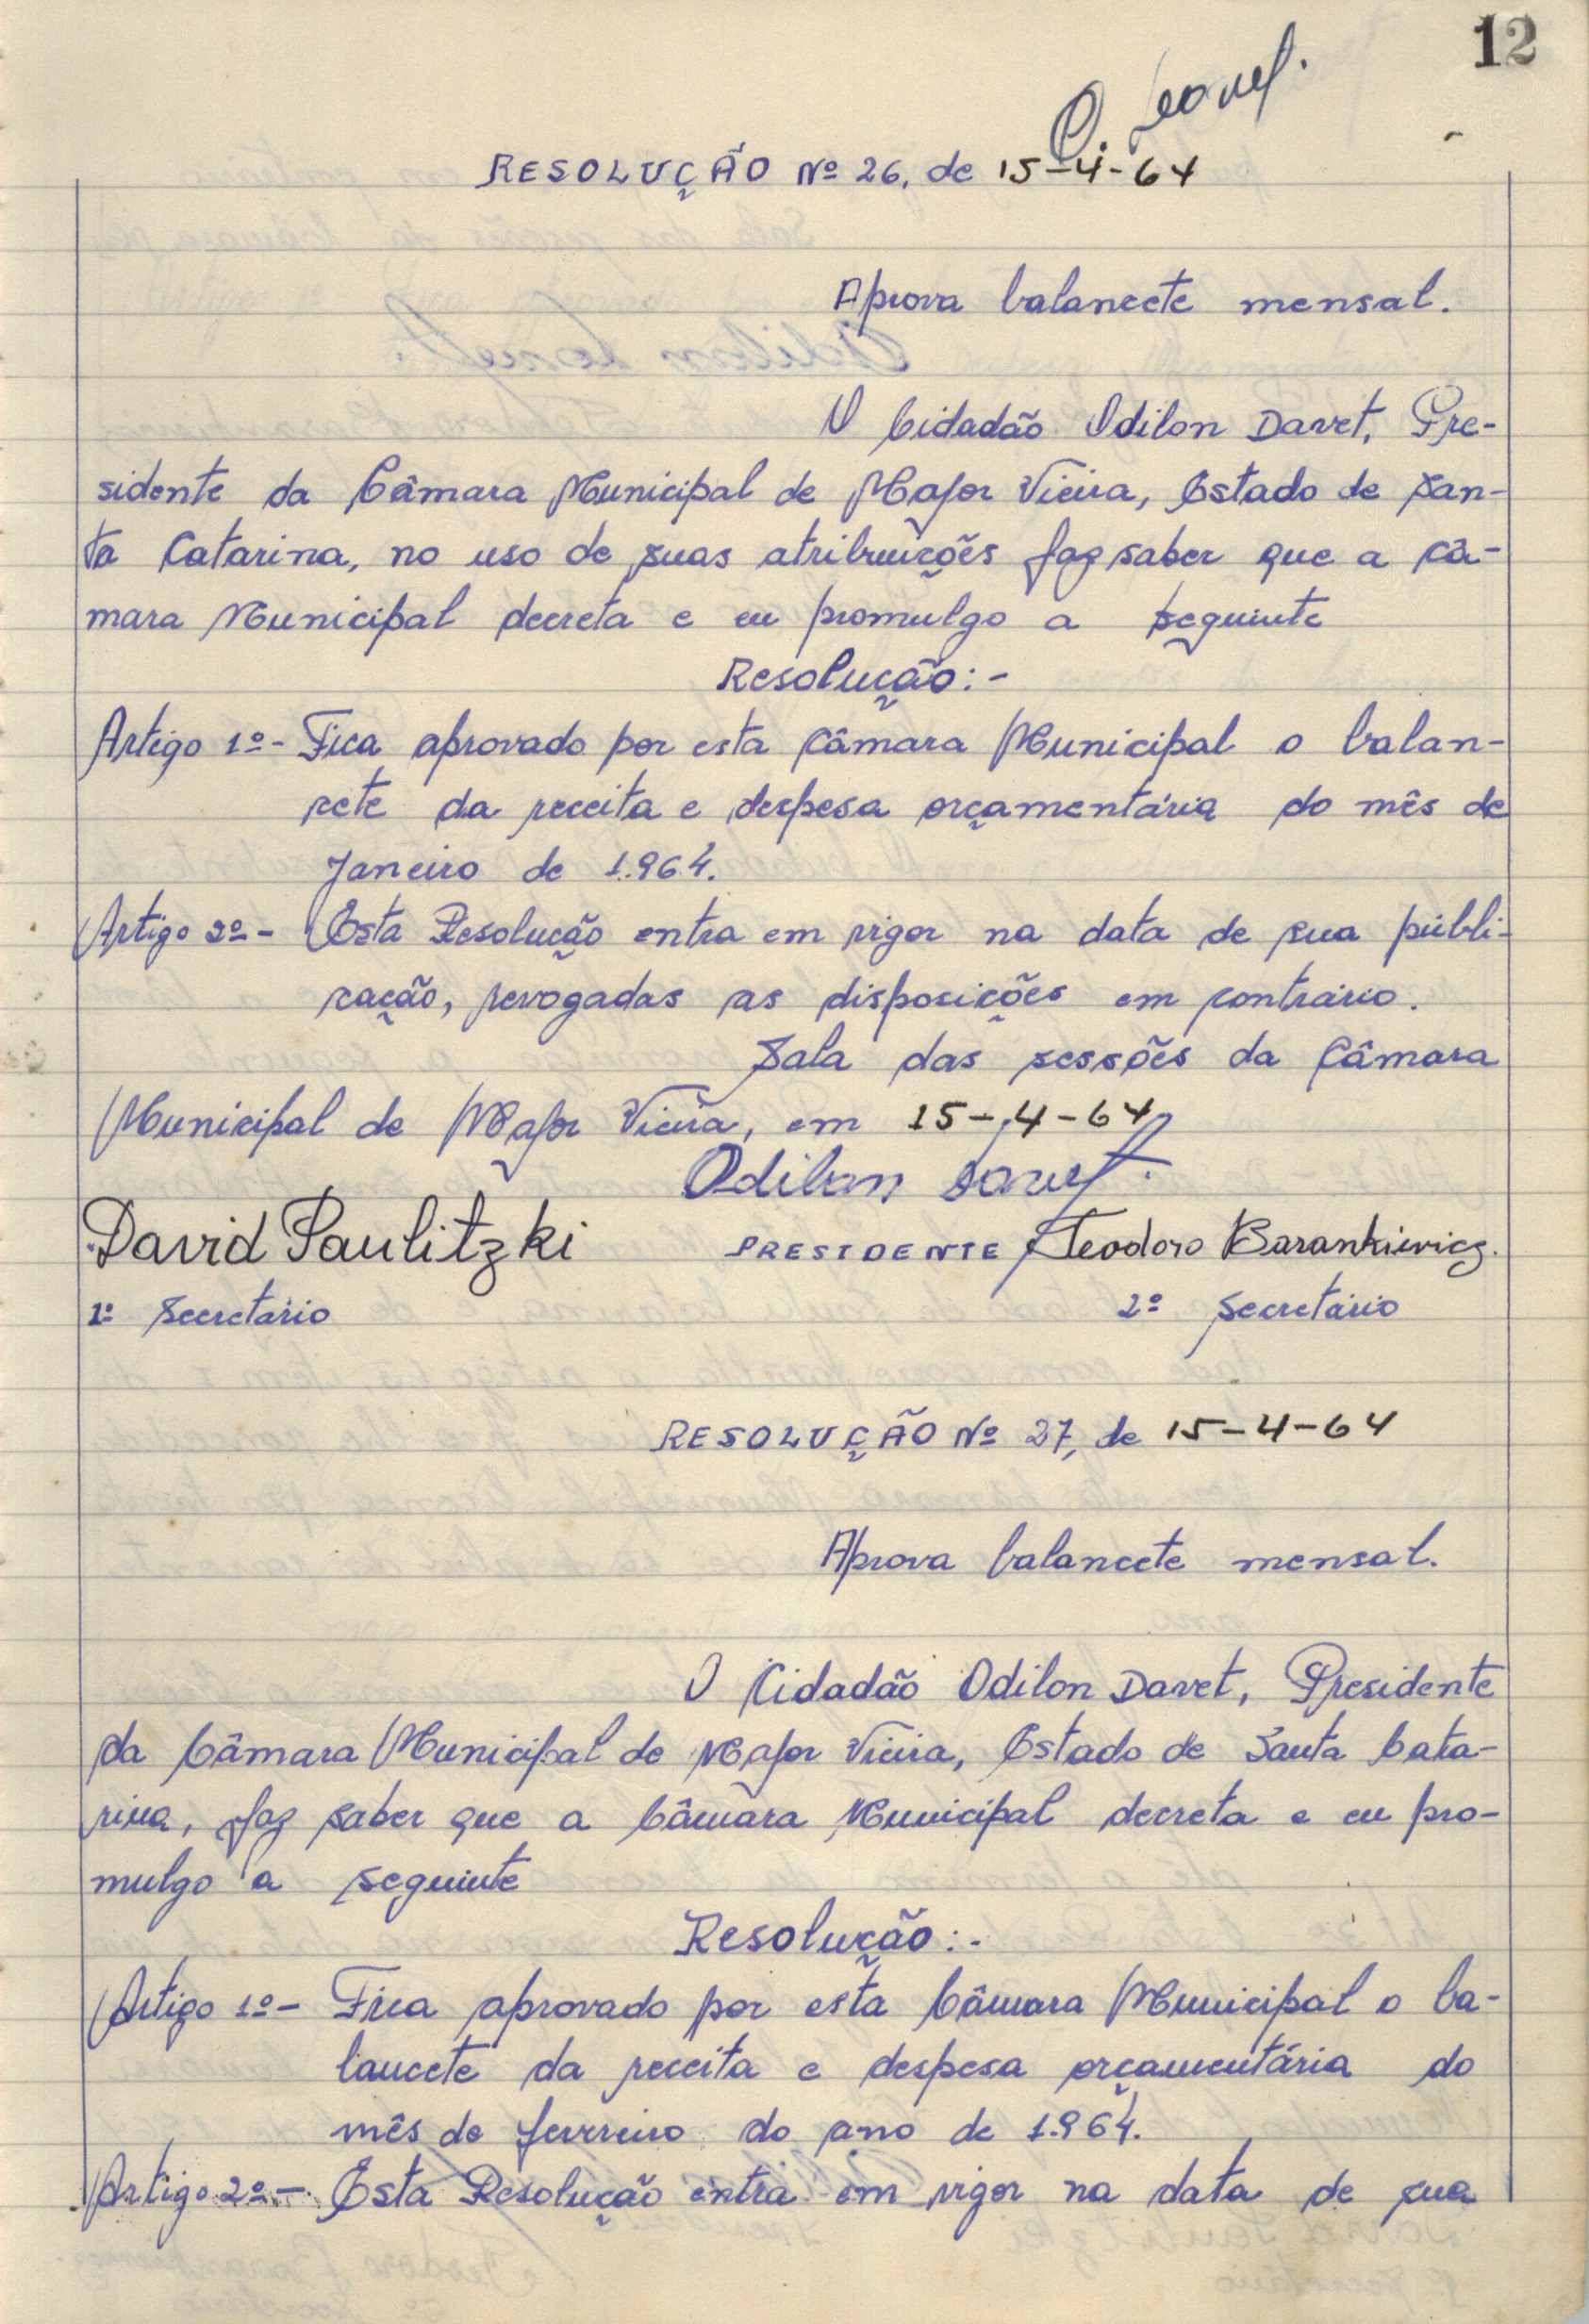 12
RESOLUÇÃO Nº 26, de 15-4-64
Aprova balancete mensal.
O Cidadão Odilon Davet, Pre-
sidente da Câmara Municipal de Major Vieira, Estado de San-
ta Catarina, no uso de suas atribuições faz saber que a câ-
mara Municipal decreta e eu promulgo a seguinte
Resolução:-
Artigo 1º- Fica aprovado por esta Câmara Municipal o balan-
cete da receita e despesa orçamentária do mês de
Janeiro de 1.964.
Artigo 2º- Esta Resolução entra em vigor na data de sua públi-
cação, revogadas as disposições em contrário.
Sala das sessões da Câmara
Municipal de Major Vieira, em 15-4-64
Odilon Davet.
David Paulitzki PRESIDENTE Teodoro Barankievicz.
1º Secretário 2º Secretário
RESOLUÇÃO Nº 27, de 15-4-64
Aprova balancete mensal.
O Cidadão Odilon Davet, Presidente
da Câmara Municipal de Major Vieira, Estado de Santa Cata-
rina, faz saber que a Câmara Municipal decreta e eu pro-
mulgo a seguinte
Resolução:-
Artigo 1º- Fica aprovado por esta Câmara Municipal o ba-
lancete da receita e despesa orçamentária do
mês de fevereiro do ano de 1.964.
Artigo 2º- Esta Resolução entra em vigor na data de sua